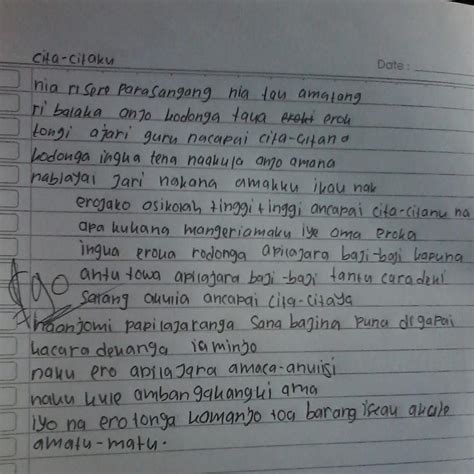 cita-citaku
Date :
nia ri sere parasangang nia tau amatang
ri balaka anjo kodonga taua eroki erok
tongi ajari guru nacapai cita-citana
kodonga ingua tena naakula anjo amana
nabiayai jari nakana amakku ikau nak
erojako osikolah tinggi tinggi ancapai cita-citanu na
apa kukana mangeriamaku iye oma eroka
ingua eroua rodonga apilajara baji-baji kapuna
antu towa apilajara baji-baji tantu caradeki
90 sarang akulia ancapai cita-citaya
naanjomi papilajaranga sana bajina puna digapai
kacara dekanga iaminjo
naku ero apilajara amaca-anuisi
naku kule ambanggakangki ama
iyo na erotonga komanjo toa barang ikau akule
amatu-matu.